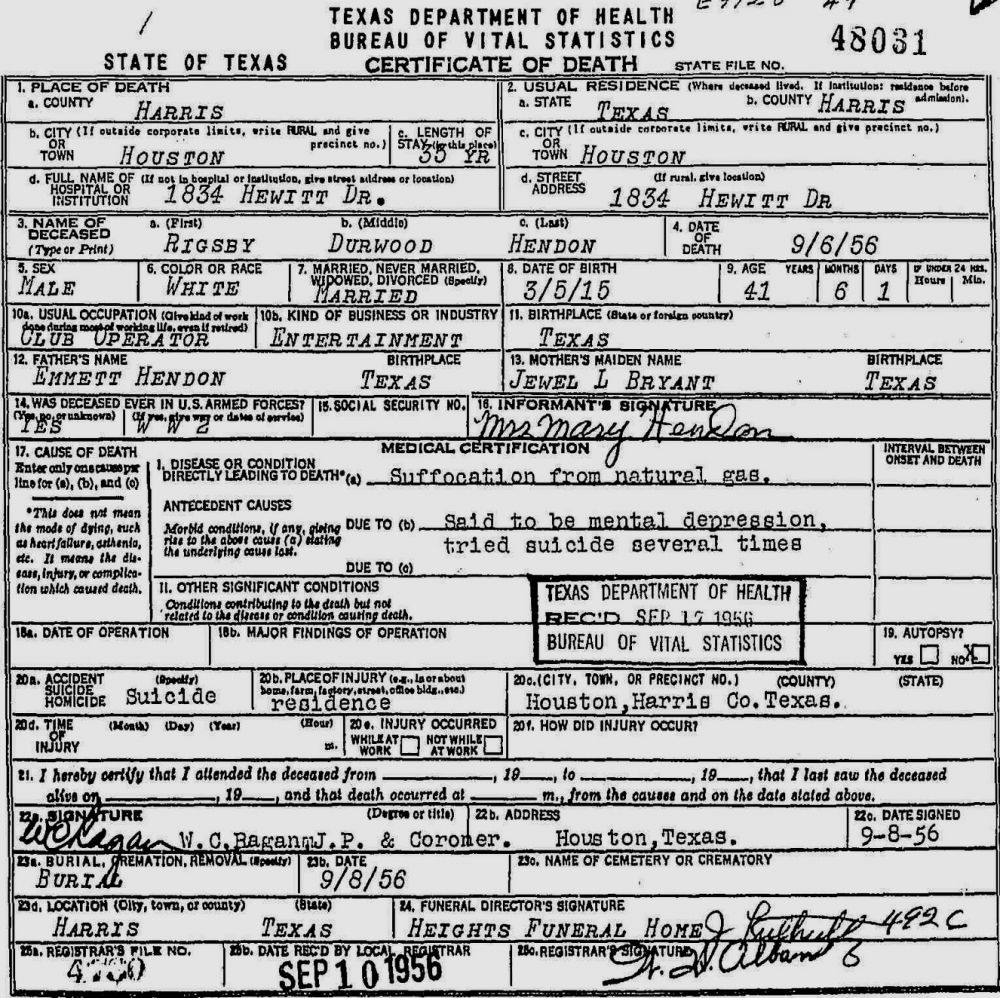 TEXAS DEPARTMENT OF HEALTH
BUREAU OF VITAL STATISTICS
48031
STATE OF TEXAS CERTIFICATE OF DEATH STATE FILE NO.
1. PLACE OF DEATH
a. COUNTY HARRIS
2. USUAL RESIDENCE (Where deceased lived. If institution: residence before admission).
a. STATE TEXAS b. COUNTY HARRIS
b. CITY (If outside corporate limits, write RURAL and give precinct no.)
OR TOWN HOUSTON
c. LENGTH OF STAY (in this place)
YR
c. CITY (If outside corporate limits, write RURAL and give precinct no.)
OR TOWN HOUSTON
d. FULL NAME OF (If not in hospital or institution, give street address or location)
HOSPITAL OR INSTITUTION 1834 HEWITT DR.
d. STREET ADDRESS (If rural, give location)
1834 HEWITT DR
3. NAME OF DECEASED (Type or Print)
a. (First) b. (Middle) c. (Last)
RIGSBY DURWOOD HENDON
4. DATE OF DEATH 9/6/56
5. SEX MALE
6. COLOR OR RACE WHITE
7. MARRIED, NEVER MARRIED, WIDOWED, DIVORCED (Specify)
MARRIED
8. DATE OF BIRTH 3/5/15
9. AGE YEARS MONTHS DAYS IF UNDER 24 HRS. Hours Min.
41 6 1
10a. USUAL OCCUPATION (Give kind of work done during most of working life, even if retired)
CLUB OPERATOR
10b. KIND OF BUSINESS OR INDUSTRY
ENTERTAINMENT
11. BIRTHPLACE (State or foreign country)
TEXAS
12. FATHER'S NAME BIRTHPLACE
EMMETT HENDON TEXAS
13. MOTHER'S MAIDEN NAME BIRTHPLACE
JEWEL L BRYANT TEXAS
14. WAS DECEASED EVER IN U.S. ARMED FORCES?
(Yes, no, or unknown) (If yes, give war or dates of service)
YES W W 2
15. SOCIAL SECURITY NO.
16. INFORMANT'S SIGNATURE
Mrs Mary Hendon
17. CAUSE OF DEATH
Enter only one cause per line for (a), (b), and (c)
*This does not mean the mode of dying, such as heart failure, asthenia, etc. It means the disease, injury, or complication which caused death.
MEDICAL CERTIFICATION
INTERVAL BETWEEN ONSET AND DEATH
I. DISEASE OR CONDITION
DIRECTLY LEADING TO DEATH* (a) Suffocation from natural gas.
ANTECEDENT CAUSES
Morbid conditions, if any, giving rise to the above cause (a) stating the underlying cause last.
DUE TO (b) Said to be mental depression,
tried suicide several times
DUE TO (c)
II. OTHER SIGNIFICANT CONDITIONS
Conditions contributing to the death but not related to the disease or condition causing death.
TEXAS DEPARTMENT OF HEALTH
REC'D SEP 17 1956
BUREAU OF VITAL STATISTICS
18a. DATE OF OPERATION
18b. MAJOR FINDINGS OF OPERATION
19. AUTOPSY?
YES NO X
20a. ACCIDENT SUICIDE HOMICIDE (Specify)
Suicide
20b. PLACE OF INJURY (e.g., in or about home, farm, factory, street, office bldg., etc.)
residence
20c. (CITY, TOWN, OR PRECINCT NO.) (COUNTY) (STATE)
Houston, Harris Co. Texas.
20d. TIME OF INJURY (Month) (Day) (Year) (Hour) m.
20e. INJURY OCCURRED
WHILE AT WORK NOT WHILE AT WORK
20f. HOW DID INJURY OCCUR?
21. I hereby certify that I attended the deceased from , 19 , to , 19 , that I last saw the deceased
alive on , 19 , and that death occurred at m., from the causes and on the date stated above.
22a. SIGNATURE (Degree or title)
WC Ragan W.C. Ragan, J.P. & Coroner.
22b. ADDRESS
Houston, Texas.
22c. DATE SIGNED
9-8-56
23a. BURIAL, CREMATION, REMOVAL (Specify)
BURIAL
23b. DATE
9/8/56
23c. NAME OF CEMETERY OR CREMATORY
23d. LOCATION (City, town, or county) (State)
HARRIS TEXAS
24. FUNERAL DIRECTOR'S SIGNATURE
HEIGHTS FUNERAL HOME 492C
25a. REGISTRAR'S FILE NO.
25b. DATE REC'D BY LOCAL REGISTRAR
SEP 10 1956
25c. REGISTRAR'S SIGNATURE